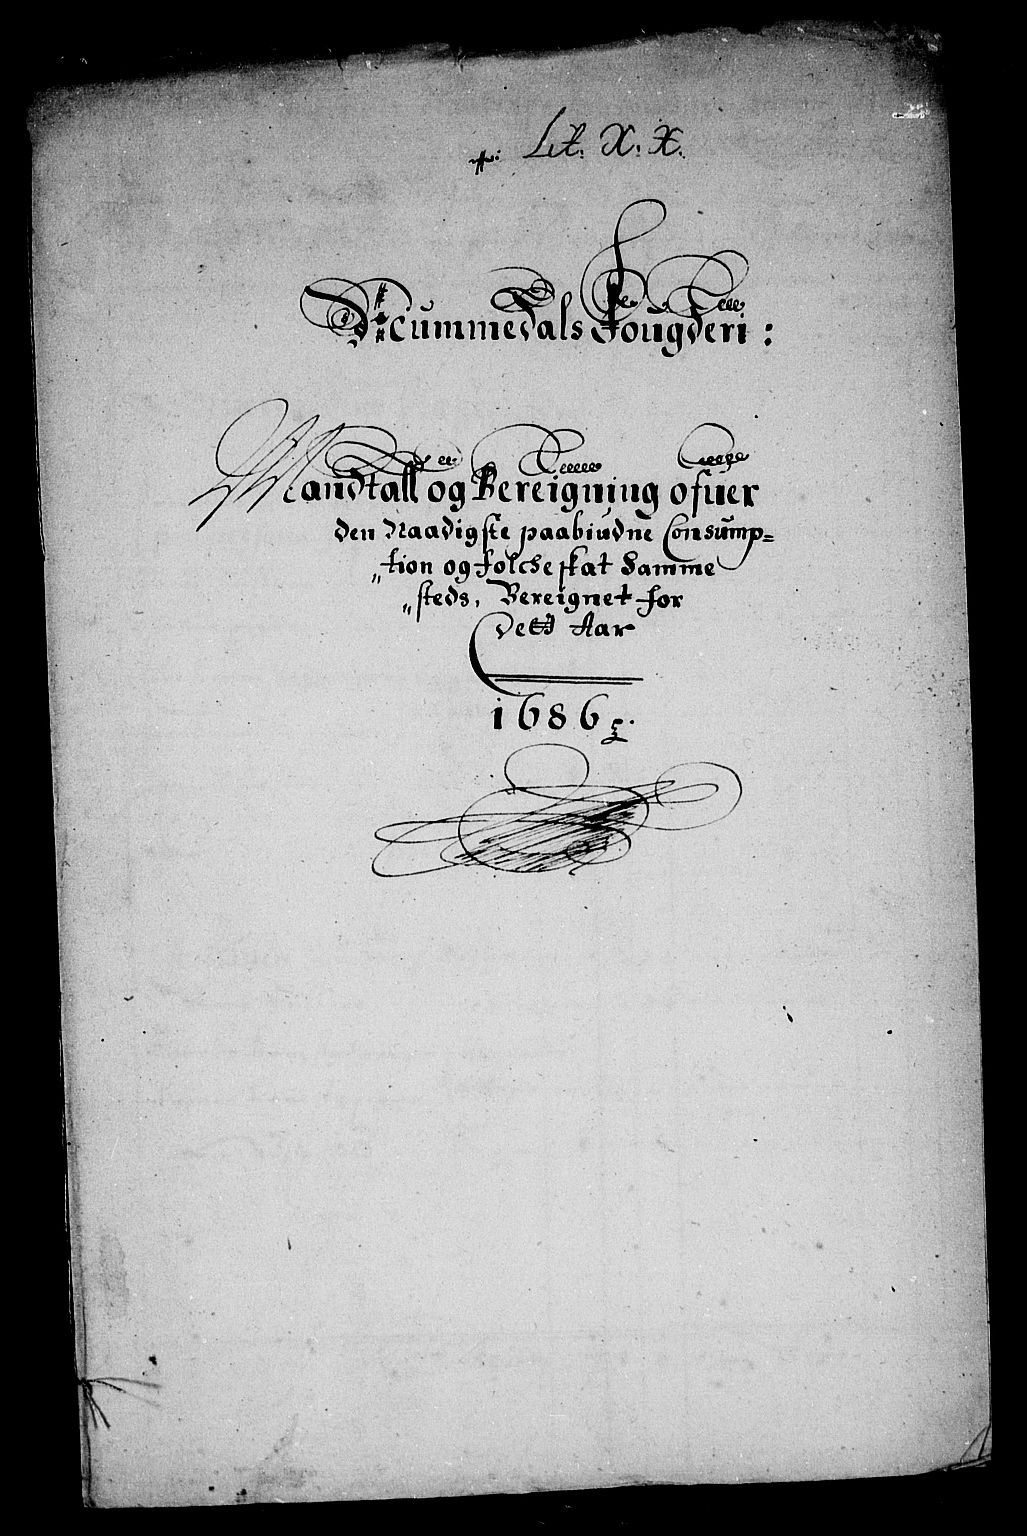 Lit. X. X.
Nummedals Fougderi:
Mandtall og Bereigning ofuer
den Naadigste paabiudne Consump=
„tion og folche skat Samme
„steds, Bereignet for
Dett Aar
1686